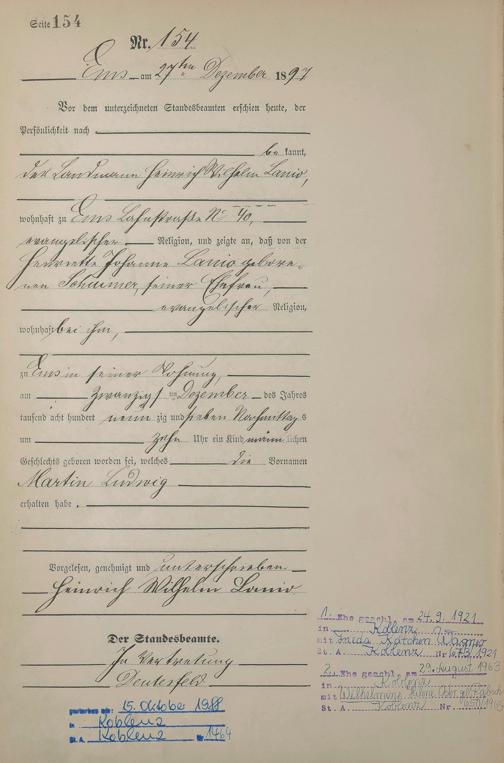 Seite 154
Nr. 154.
Ems am 27ten Dezember 1897
Vor dem unterzeichneten Standesbeamten erschien heute, der
Persönlichkeit nach
be kannt,
der Landmann Heinrich Wilhelm Lanio,
wohnhaft zu Ems Lahnstraße No 40,
evangelischer Religion, und zeigte an, daß von der
Henriette Johanne Lanio gebore-
nen seiner Ehefrau,
evangelischer Religion,
wohnhaft bei ihm,
zu Ems in seiner Wohnung,
am zwanzig ten Dezember des Jahres
tausend acht hundert neun zig und sieben Nachmittags
um zehn Uhr ein Kind männ lichen
Geschlechts geboren worden sei, welches die Vornamen
Martin Ludwig
erhalten habe.
Vorgelesen, genehmigt und unterschrieben
Heinrich Wilhelm Lanio
Der Standesbeamte.
In Vertretung
1. Ehe geschl. am 24.9.1921
in Koblenz
mit Frieda Kätchen Wagner
St. A. Koblenz Nr. 673/1921
2. Ehe geschl. am 29. August 1963
in Koblenz
mit Wilhelmine
St. A. Koblenz Nr.
gestorben am: 15. Oktober 1988
in Koblenz
St.A. Koblenz Nr. 1464